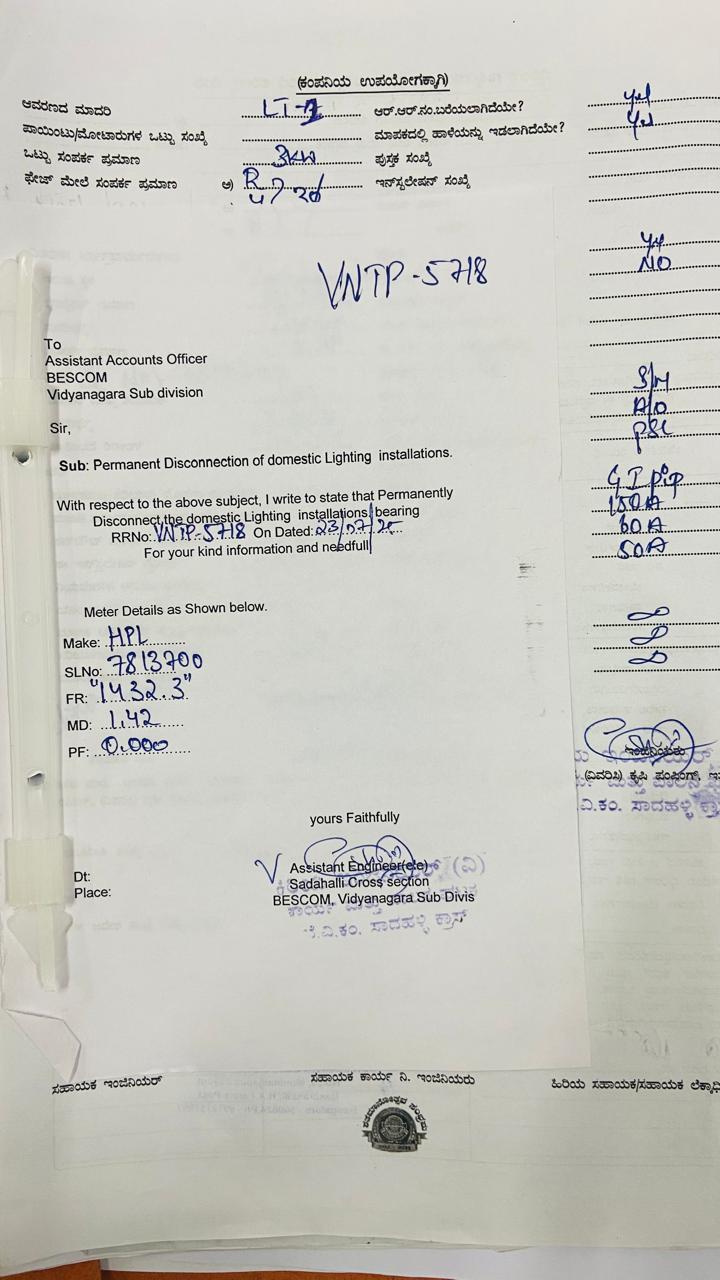 (ಕಂಪನಿಯ ಉಪಯೋಗಕ್ಕಾಗಿ)
ಆವರಣದ ಮಾದರಿ LT- ಆರ್.ಆರ್.ನಂ.ಬರೆಯಲಾಗಿದೆಯೇ? yes
ಪಾಯಿಂಟು/ಮೋಟಾರುಗಳ ಒಟ್ಟು ಸಂಖ್ಯೆ ಮಾಪಕದಲ್ಲಿ ಹಾಳೆಯನ್ನು ಇಡಲಾಗಿದೆಯೇ? yes
ಒಟ್ಟು ಸಂಪರ್ಕ ಪ್ರಮಾಣ 3KW ಪುಸ್ತಕ ಸಂಖ್ಯೆ
ಫೇಜ್ ಮೇಲೆ ಸಂಪರ್ಕ ಪ್ರಮಾಣ ಅ) R ಇನ್‌ಸ್ಟಲೇಷನ್ ಸಂಖ್ಯೆ
VNTP-5718
NO
To
Assistant Accounts Officer
BESCOM
Vidyanagara Sub division
Sir,
Sub: Permanent Disconnection of domestic Lighting installations.
With respect to the above subject, I write to state that Permanently
Disconnect the domestic Lighting installations bearing
RRNo: VNTP-5718 On Dated: 23/07/25
For your kind information and needfull
GI pip
150A
60A
50A
Meter Details as Shown below.
Make: HPL
SLNo: 7813700
FR: "1432.3"
MD: 1.42
PF: 0.000
ಇಂಜಿನಿಯರು
(ವಿವರಿಸಿ) ಕೃಷಿ ಪಂಪಿಂಗ್,
ವಿ.ಕಂ. ಸಾದಹಳ್ಳಿ ಕ್ರಾ
yours Faithfully
Assistant Engineer(ele)
Sadahalli Cross section
BESCOM, Vidyanagara Sub Divis
ವಿ.ಕಂ. ಸಾದಹಳ್ಳಿ ಕ್ರಾಸ್
Dt:
Place:
ಸಹಾಯಕ ಇಂಜಿನಿಯರ್ ಸಹಾಯಕ ಕಾರ್ಯ ನಿ. ಇಂಜಿನಿಯರು ಹಿರಿಯ ಸಹಾಯಕ/ಸಹಾಯಕ